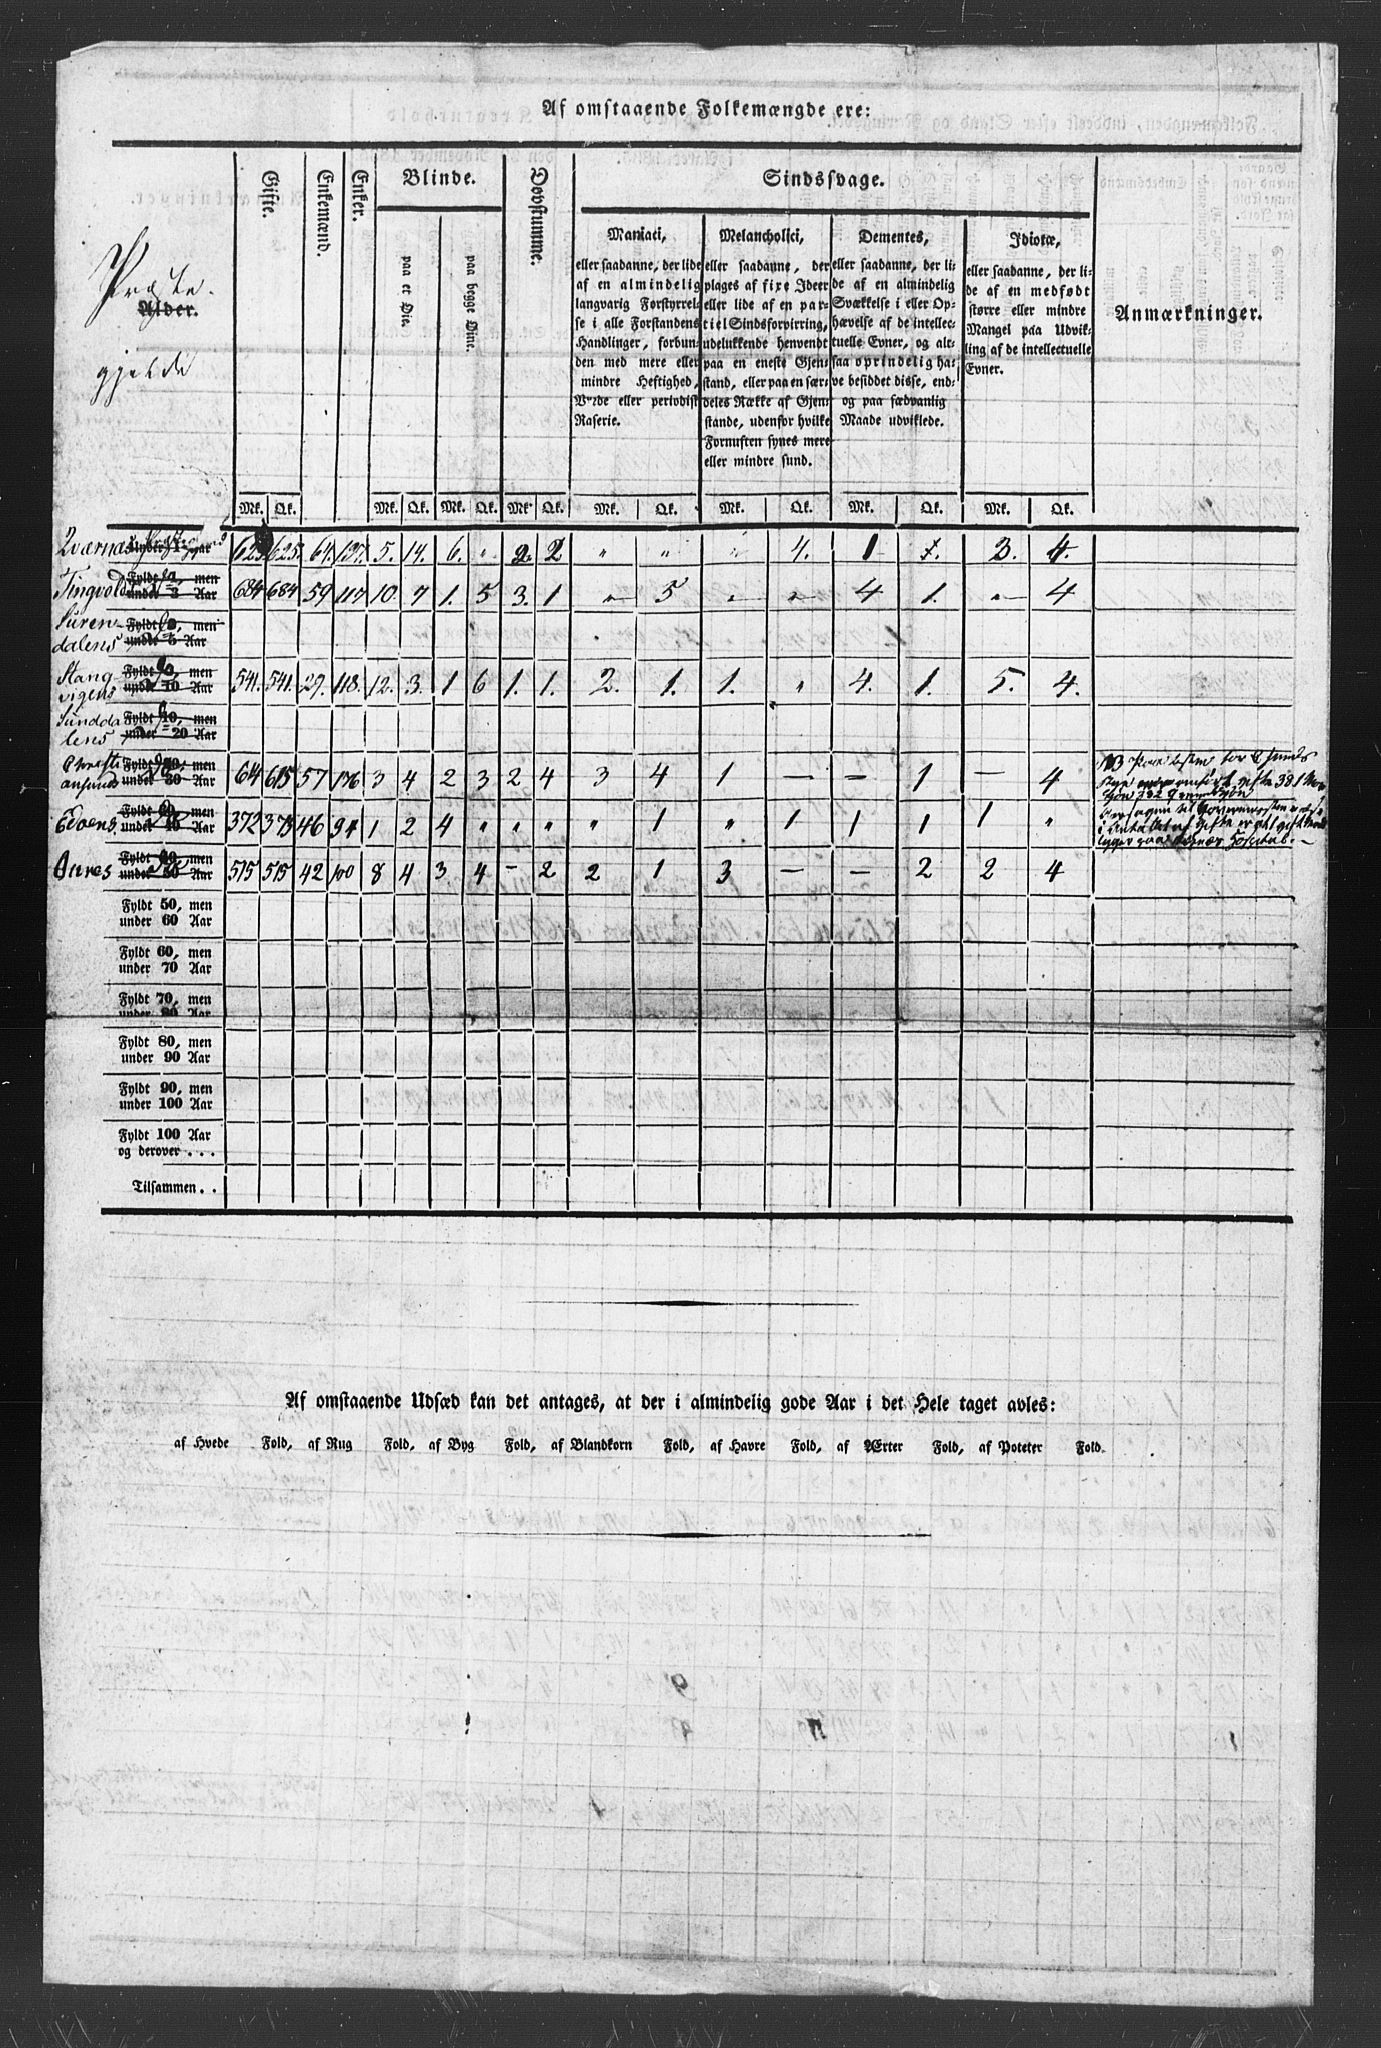 Af omstaaende Folkemængde ere:
Præste-
Alder.
gjelde
Gifte.
Enkemænd.
Enker.
Blinde.
paa et Øie.
paa begge Øine.
Døvstumme.
Sindssvage.
Maniaci,
eller saadanne, der lide
af en almindelig
langvarig Forstyrrel-
se i alle Forstandens
Handlinger, forbun-
den med mere eller
mindre Heftighed,
Vrede eller periodisk
Raserie.
Melancholici,
eller saadanne, der
plages af fixe Ideer
eller lide af en par-
tiel Sindsforvirring,
udelukkende henvendt
paa en eneste Gjen-
stand, eller paa en sær-
deles Række af Gjen-
stande, udenfor hvilke
Fornuften synes mere
eller mindre sund.
Dementes,
eller saadanne, der li-
de af en almindelig
Svækkelse i eller Op-
hævelse af de intellec-
tuelle Evner, og alt-
saa oprindelig ha-
ve besiddet disse, end-
og paa sædvanlig
Maade udviklede.
Idiotæ,
eller saadanne, der li-
de af en medfødt
større eller mindre
Mangel paa Udvik-
ling af de intellectuelle
Evner.
Anmærkninger.
Mk. Qk. Mk. Qk. Mk. Qk. Mk. Qk. Mk. Qk. Mk. Qk. Mk. Qk. Mk. Qk.
Qværnæs 625. 64. 137. 5. 14. 6. „ 2. 2 „ „ „ 4. 1 1. 3. 4.
Tingvold 684 684 59 117 10. 7 1. 5 3. 1 „ 5 „ „ 4 1. „ 4
Fyldt 1, men
under 3 Aar
Suren-
dalens
Fyldt 3, men
under 5 Aar
Stang
vigens 541. 541. 29. 118. 12. 3. 1 6 1. 1. 2. 1. 1. „ 4. 1. 5. 4.
Fyldt 5, men
under 10 Aar
Sundda
lens
Fyldt 10, men
under 20 Aar
Christi
ansunds 57 176 3 4 2 3 2 4 3 4 1 — — 1 — 4
Fyldt 20, men
under 30 Aar
Edøens 372 373 46 94 1 2 4 „ „ „ „ 1 „ 1 1 1 1 „
Fyldt 30, men
under 40 Aar
Aures 515 515 42 100 8 4 3 4 — 2 2 1 3 — — 2 2 4
Fyldt 40, men
under 50 Aar
Fyldt 50, men
under 60 Aar
Fyldt 60, men
under 70 Aar
Fyldt 70, men
under 80 Aar
Fyldt 80, men
under 90 Aar
Fyldt 90, men
under 100 Aar
Fyldt 100 Aar
og derover . . .
Tilsammen . .
Af omstaaende Udsæd kan det antages, at der i almindelig gode Aar i det Hele taget avles:
af Hvede Fold, af Rug Fold, af Byg Fold, af Blandkorn Fold, af Havre Fold, af Ærter Fold, af Poteter Fold.